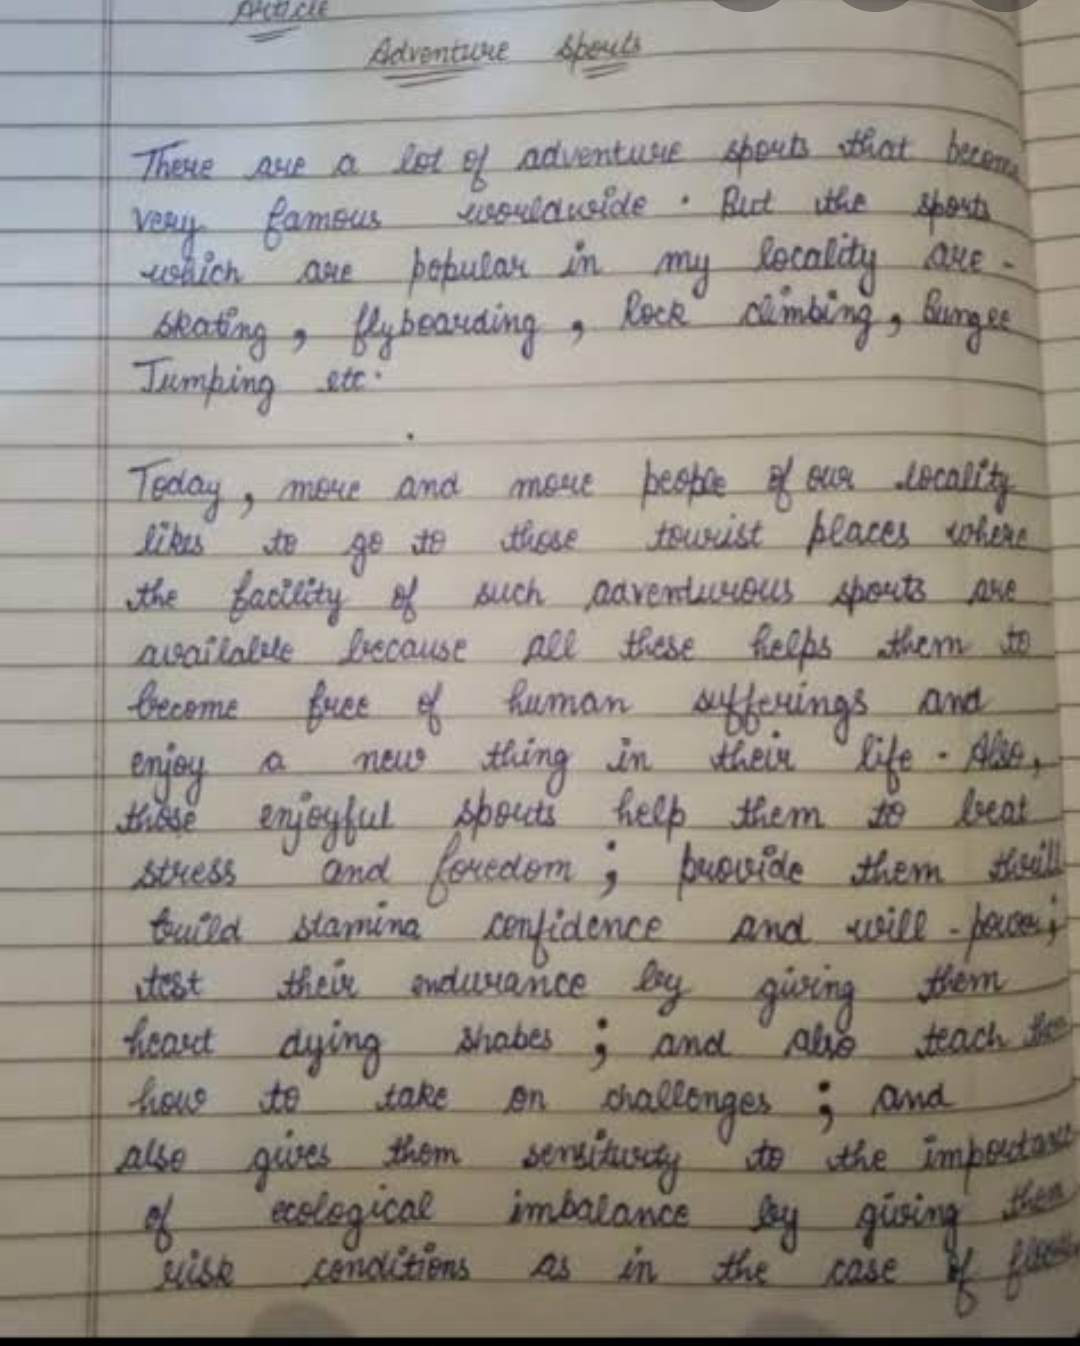 Article
Adventure Sports
There are a lot of adventure sports that become
very famous worldwide. But the sports
which are popular in my locality are -
skating, flyboarding, Rock climbing, Bungee
Jumping etc.
Today, more and more people of our locality
likes to go to those tourist places where
the facility of such adventurous sports are
available because all these helps them to
become free of human sufferings and
enjoy a new thing in their life. Also,
those enjoyful sports help them to beat
stress and foredom; provide them thrill
build stamina confidence and will-power;
test their endurance by giving them
heart dying shabes; and also teach them
how to take on challenges; and
also gives them sensiturty to the importance
of ecological imbalance by giving them
risk conditions as in the case of